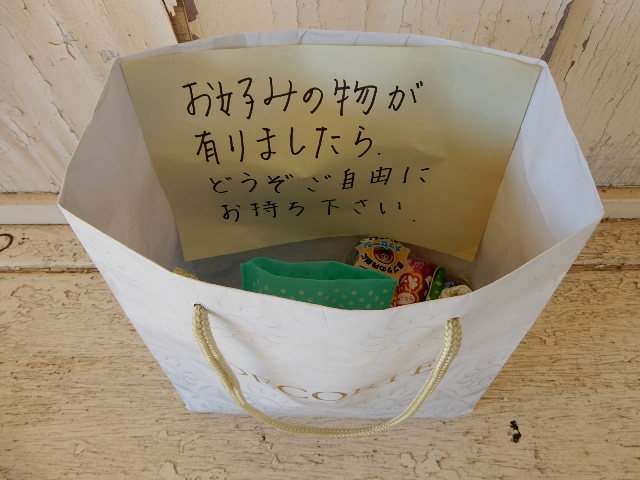 お好みの物が
有りましたら、
どうぞご自由に
お持ち下さい.